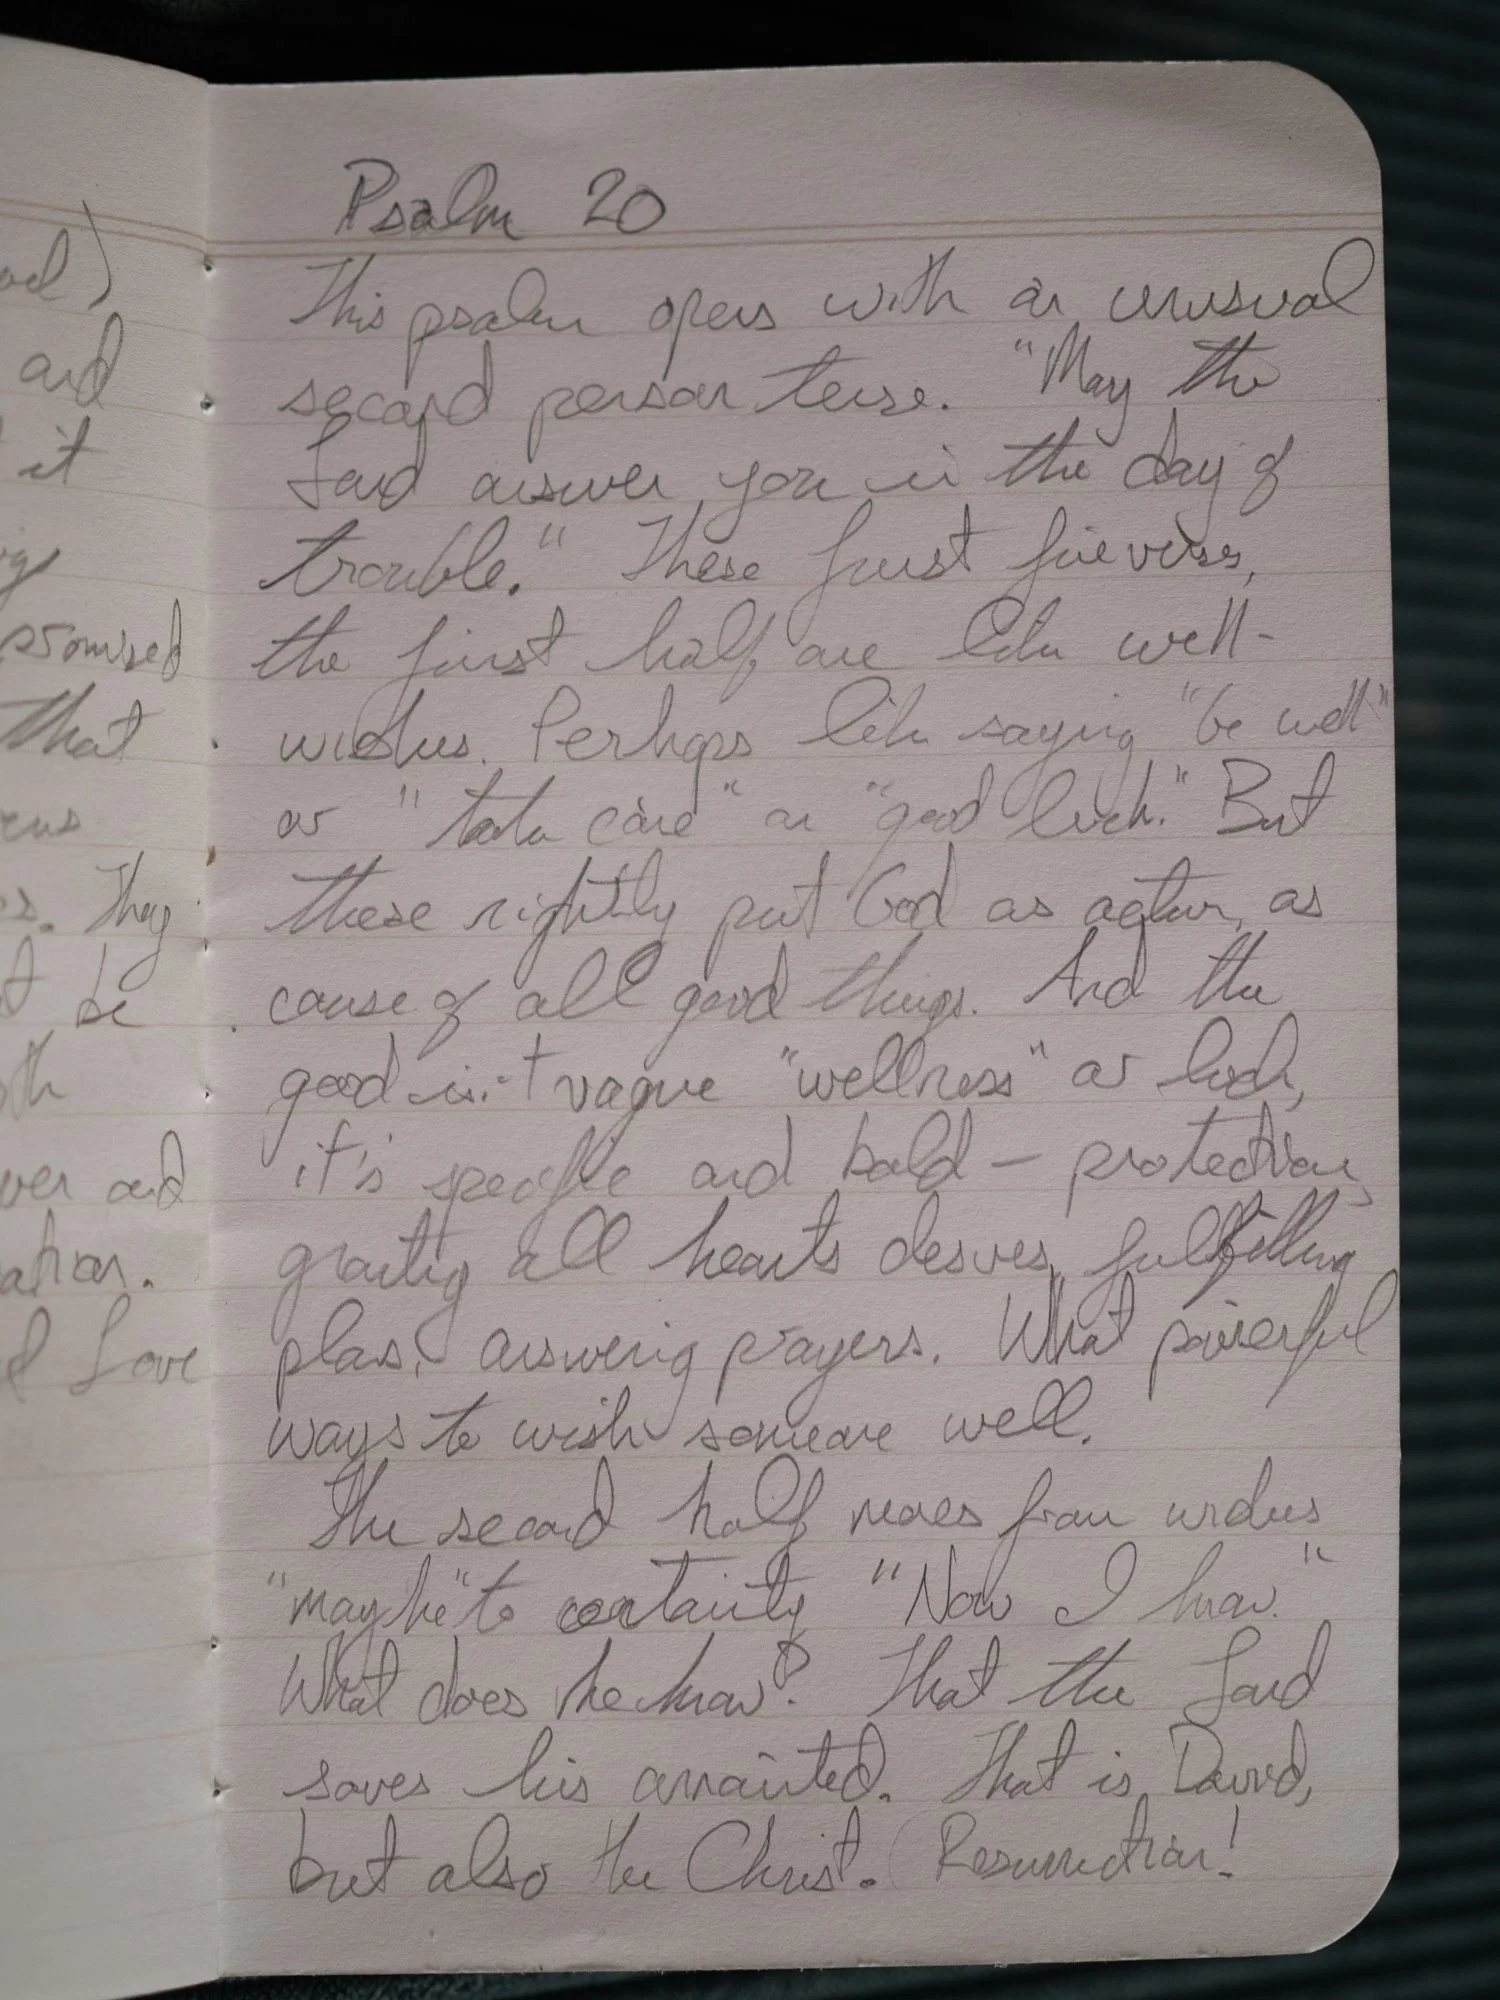 Psalm 20
This psalm opens with an unusual
second person tense. "May the
Lord answer you in the day of
trouble." These first five verses,
the first half, are like well-
wishes. Perhaps like saying "be well"
or "take care" or "good luck." But
these rightly put God as actor, as
cause of all good things. And the
good isn't vague "wellness" or luck,
it's specific and bold – protection,
granting all hearts desires, fulfilling
plans, answering prayers. What powerful
ways to wish someone well.
The second half moves from wishes
"may he" to certainty "Now I know."
What does he know? That the Lord
saves his annointed. That is David,
but also the Christ. (Resurrection!
and
it
promised
that
They
be
and
Love